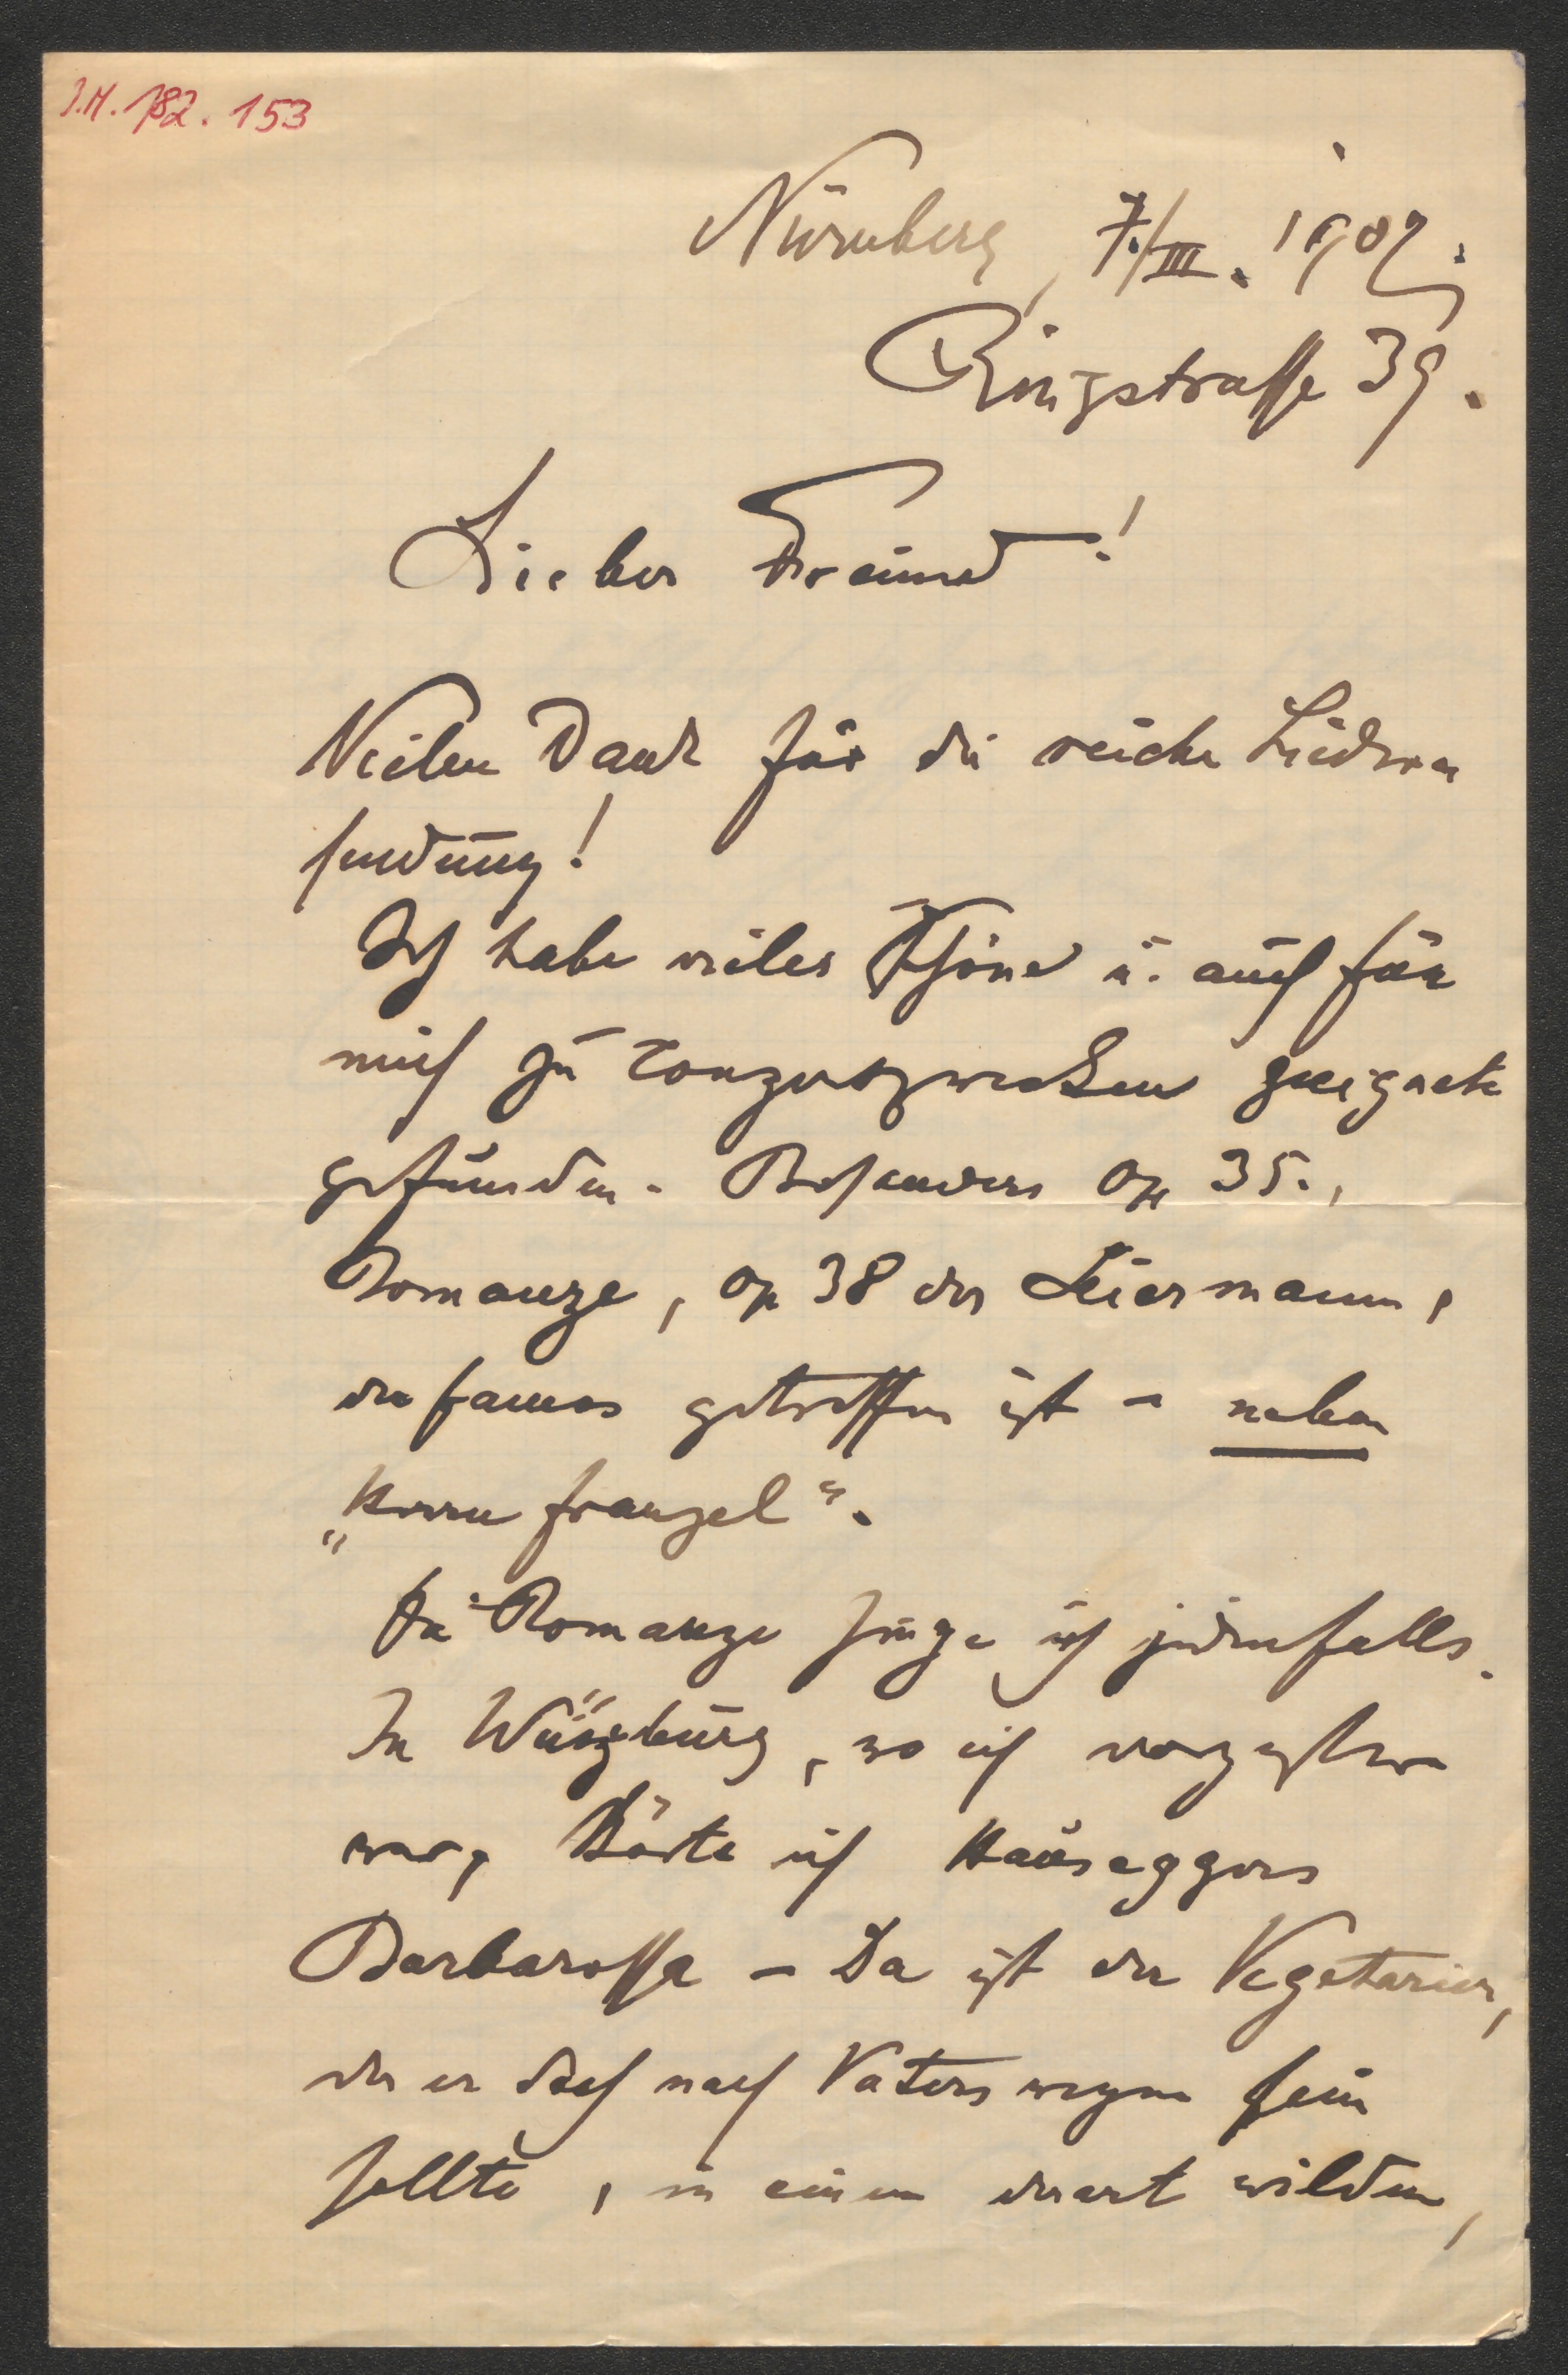 I.N. 182.153
Nürnberg, 7./III. 1902.
Ringstrasse 39.
Lieber Freund!
Vielen Dank für die reiche Lieder
sendung!
Ich habe vieles Schöne u. auch für
mich zu Conzertzwecken geeignete
gefunden. Besonders op 35.,
Romanze, op 38 der Leiermann,
der famos getroffen ist – neben
„Herrn Franzel".
Die Romanze singe ich jedenfalls.
In Würzburg, wo ich vorgestern
war, hörte ich Hauseggers
Barbarossa – Da ist der Vegetarier,
der er doch nach Vaters wegen sein
sollte, in einen derart wilden,